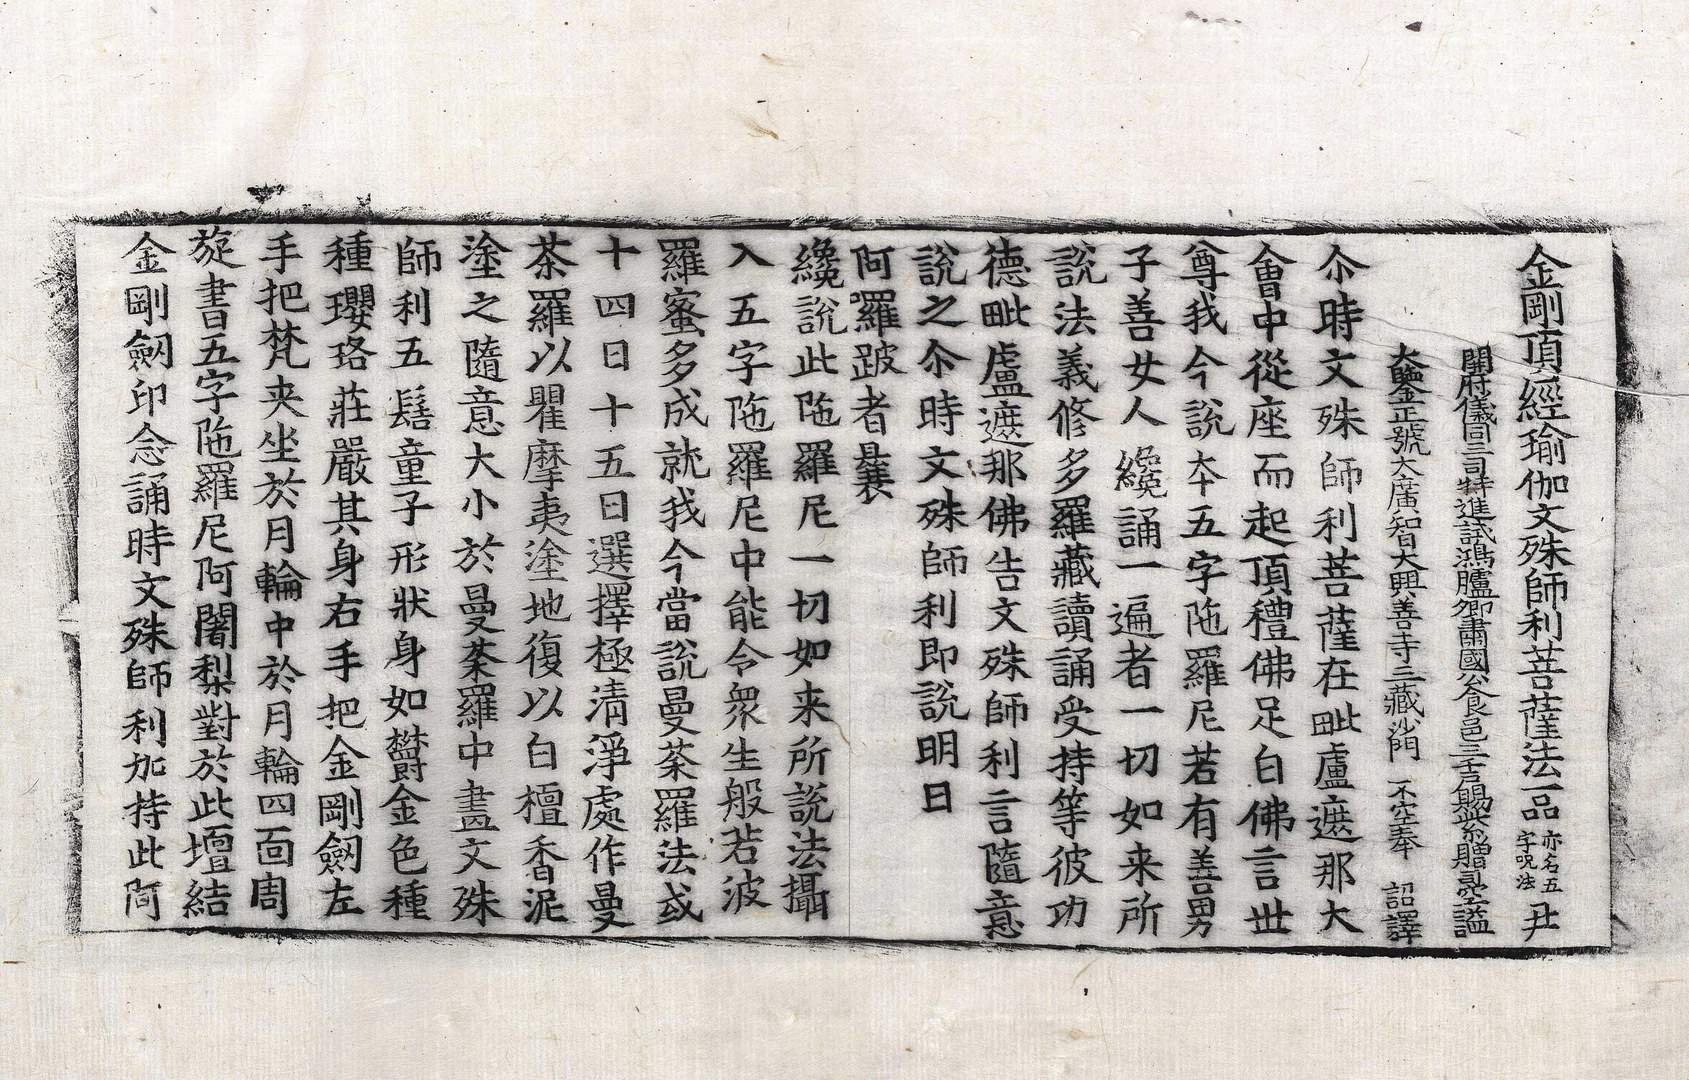 金剛頂經瑜伽文殊師利菩薩法一品 亦名五字呪法 丑
開府儀同三司特進試鴻臚卿肅國公食邑三千戶賜紫贈司空謚
大鑒正號大廣智大興善寺三藏沙門 不空奉 詔譯
尒時文殊師利菩薩在毗盧遮那大
會中從座而起頂禮佛足白佛言世
尊我今說本五字陁羅尼若有善男
子善女人纔誦一遍者一切如来所
說法義修多羅藏讀誦受持等彼功
德毗盧遮那佛告文殊師利言隨意
說之尒時文殊師利即說明曰
阿囉跛者曩
纔說此陁羅尼一切如来所說法攝
入五字陁羅尼中能令衆生般若波
羅蜜多成就我今當說曼荼羅法或
十四日十五日選擇極清淨處作曼
荼羅以瞿摩夷塗地復以白檀香泥
塗之隨意大小於曼荼羅中畫文殊
師利五髻童子形狀身如欝金色種
種瓔珞莊嚴其身右手把金剛劒左
手把梵夾坐於月輪中於月輪四面周
旋書五字陁羅尼阿闍梨對於此壇結
金剛劒印念誦時文殊師利加持此阿